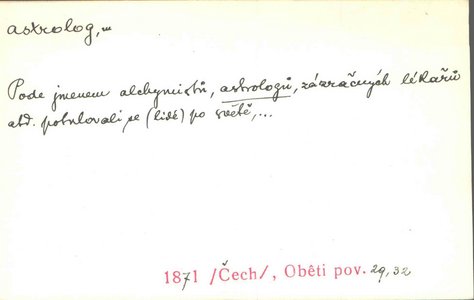 astrolog, m
Pode jmenem alchymistů, astrologů, zázračných lékařů
atd. potulovali se (lidé) po světě,...
1871 /Čech/, Oběti pov. 29, 32